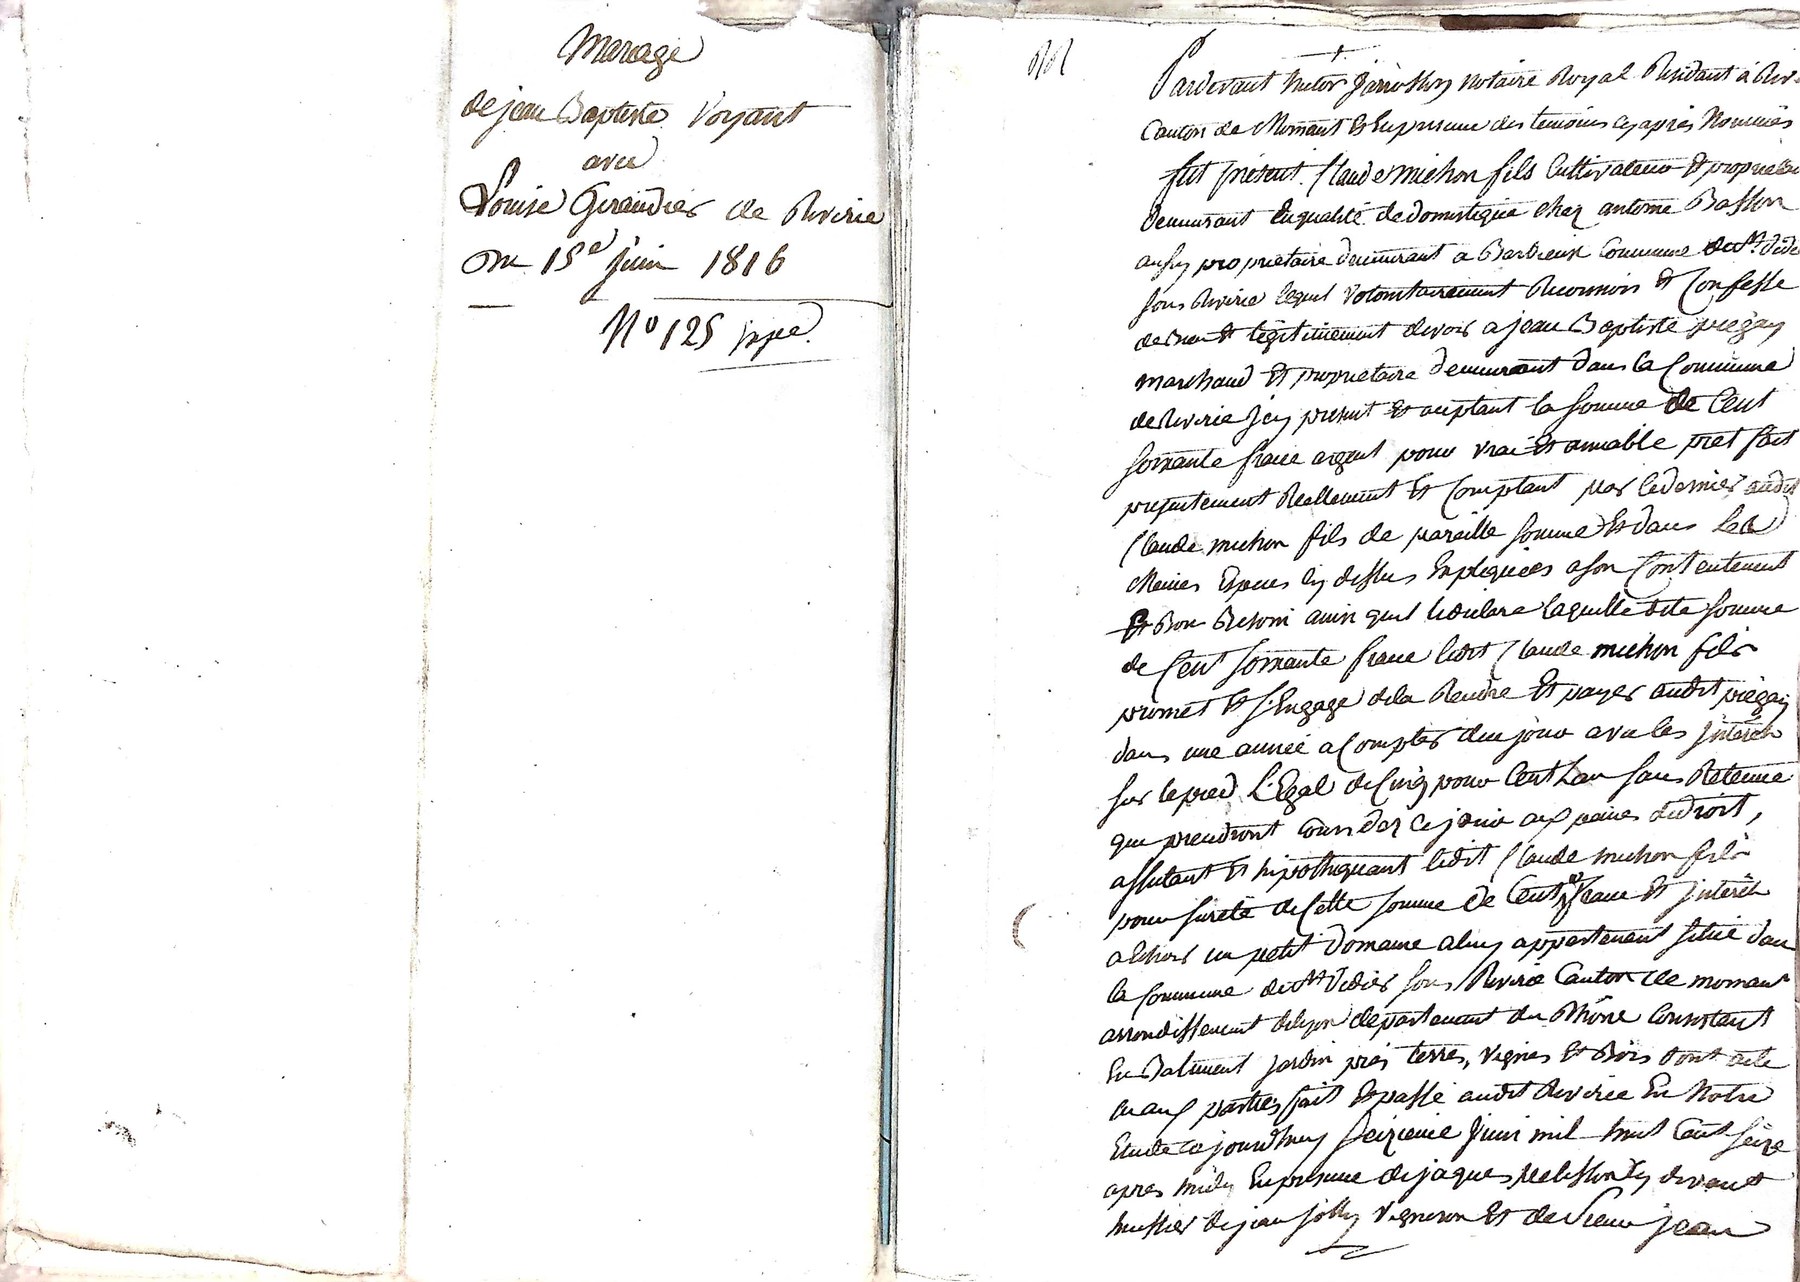 Mariage
de jean Baptiste Voyant
avec
Louise Giraudier de Riverie
Du 15e juin 1816
No 125 jxpe
Pardevant notaire Royal Residant à Riv
Canton de Mornant Et En presence des temoins cy après Nommés
fut présent Claude michon fils Cultivateur Et proprietaire
demeurant En qualité de domestique chez antoine Basson
aussy propriétaire demeurant a Barbieux Commune de St. Didier
sous Riverie lequel volontairement Reconnois Et Confesse
de Bien Et légitimement devoir a jean Baptiste piegay
marchand Et proprietaire demeurant dans la Commune
de Riverie Jcy present Et aceptant la somme de Cent
soixante franc argent pour vrai Et amiable pret fait
presentement Reellement Et Comptant par le dernier audit
Claude michon fils de pareille somme Et dans les
Memes Especes cy dessus Expliquées a son Contentement
Et Bon Besoin ainsi quil le déclare laquelle dite somme
de Cent soixante franc ledit Claude michon fils
promet Et s'Engage de la Rendre Et payer audit piegay
dans une année a Compter de ce jour avec les Jnterêts
sur le pied L'Egal de Cinq pour Cent L'an sans Retenue
que prendront cours dez ce jour aux peines de droit,
affectant Et hipothequant ledit Claude michon fils
pour sureté de Cette somme de Cent franc Et Jnterêts
a Echoir un petit Domaine a luy appartenant situé dans
la Commune de St Didier sous Riverie Canton de mornant
arrondissement de lyon département du Rhône Consistant
En Batiment jardin prés terres, vignes Et Bois dont acte
aux parties fait Et passé audit Riverie En Notre
Etude ce jourdhuy seizieme Juin mil huit Cent seize
apres midy En presence de jaques pelisson cy devant
huissier de jean jolly vigneron Et de sieur jean